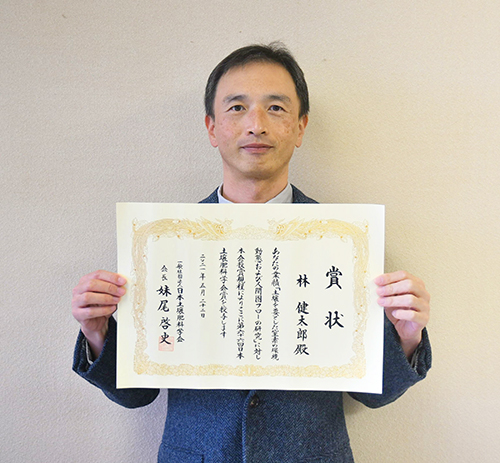 賞状
林 健太郎殿
あなたの業績「土壌を要とした窒素の環境
動態および人間圏フローの研究」に対し
本会授賞規程によりここに第六十六回日本
土壌肥料学会賞を授与します
二〇二一年五月二十二日
一般社団法人日本土壌肥料学会
会長 妹尾啓史